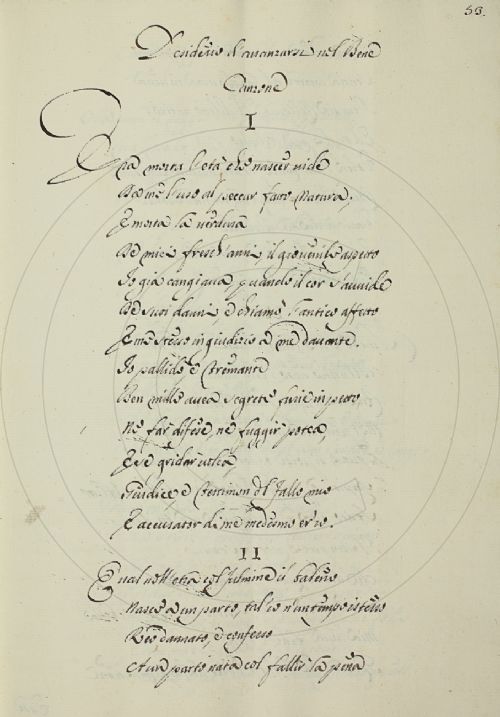 53.
Desiderio d'avanzarsi nel Bene
Canzone
I
Era morta l'età che nascer vide
Da me l'uso al peccar fatto Natura;
E morta la verdura
De miei fresch'anni, il giovenile aspetto
Io già cangiava, quando il cor s'avvide
De suoi danni, e chiamò l'antico affetto
E me stesso in giudicio a me davante.
Io pallido e tremante
Ben mille avea segrete furie in petto,
Ne far difese, ne fuggir potea,
E se gridar volea,
Giudice e testimon del fallo mio
E accusator di me medesmo er'io.
II
Qual nell'etra col fulmine il baleno
Nasce a un parto, tal io n'un tempo istesso
Reo dannato, e confesso
A un parto nata col fallir la pena